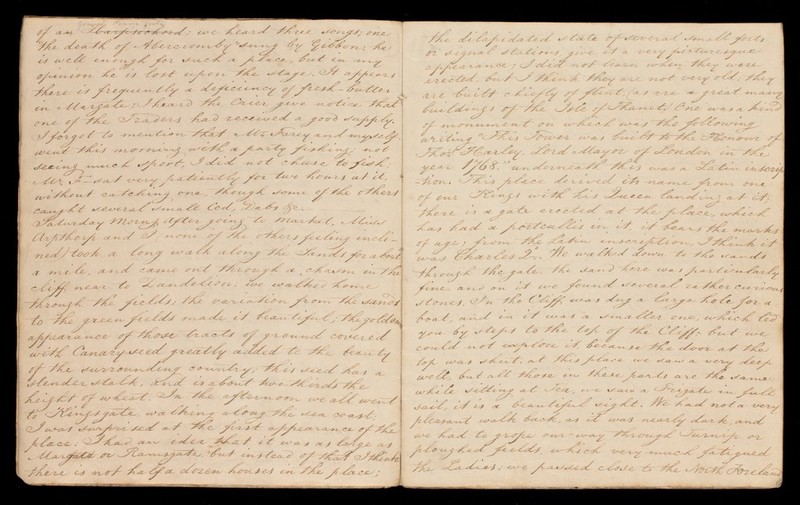 of an Harpsichord; we heard three songs, one
"The death of Abercromby" sung by Gibbon; he
is well enough for such a place, but in my
opinion he is lost upon the stage. It appears
there is frequently a deficiency of fresh-butter
in Margate; I heard the Crier give notice that
one of the Traders had received a good supply.
I forgot to mention that Mr. and myself
went this morning with a party fishing; not
seeing much sport, I did not chuse to fish.
Mr. F- sat very patiently for two hours at it,
without catching one, though some of the others
caught several small Cod, Dabs &c.
Saturday Morng. after going to market, Miss
and I, none of the others feeling incli-
ned, took a long walk along the Sands for about
a mile, and came out through a chasm in the
cliff near to Dandelion. We walked home
through the fields; the variation from the sands
to the green fields made it beautiful; the golden
appearance of those tracts of ground covered
with Canary seed greatly added to the beauty
of the surrounding country, this seed has a
slender stalk, and is about two thirds the
height of wheat. In the afternoon we all went
to Kingsgate walking along the sea coast.
I was surprised at the first appearance of the
place: I had an idea that it was as large as
Margate or Ramsgate, but instead of that I think
there is not half a dozen houses in the place;
the dilapidated state of several small forts
or signal stations, give it a very picturesque
appearance; I did not learn when they were
erected, but I think they are not very old; they
are built chiefly of flint, (as are a great many
buildings of the Isle of Thanet) One was a kind
of monument on which was the following
writing "This Tower was built to the Honour of
Thos. Harley, Lord Mayor of London in the
year 1768." underneath this was a Latin inscrip
-tion. This place derived its name from one
of our Kings with his Queen landing at it;
there is a gate erected at the place, which
has had a portcullis in it, it bears the marks
of age; from the latin inscription, I think it
was Charles 2d. We walked down to the sands
through the gate, the sand here was particularly
fine and on it we found several rather curious
stones. In the Cliff was dug a large hole for a
boat, and in it was a smaller one, which led
you by steps to the top of the Cliff; but we
could not explore it, because the door at the
top was shut. at this place we saw a very deep
well, but all those in these parts are the same.
while sitting at Tea, we saw a Frigate in full
sail, it is a beautiful sight. We had not a very
pleasant walk back, as it was nearly dark, and
we had to grope our way through Turnip or
ploughed fields, which very much fatigued
the Ladies; we passed close to the North Foreland